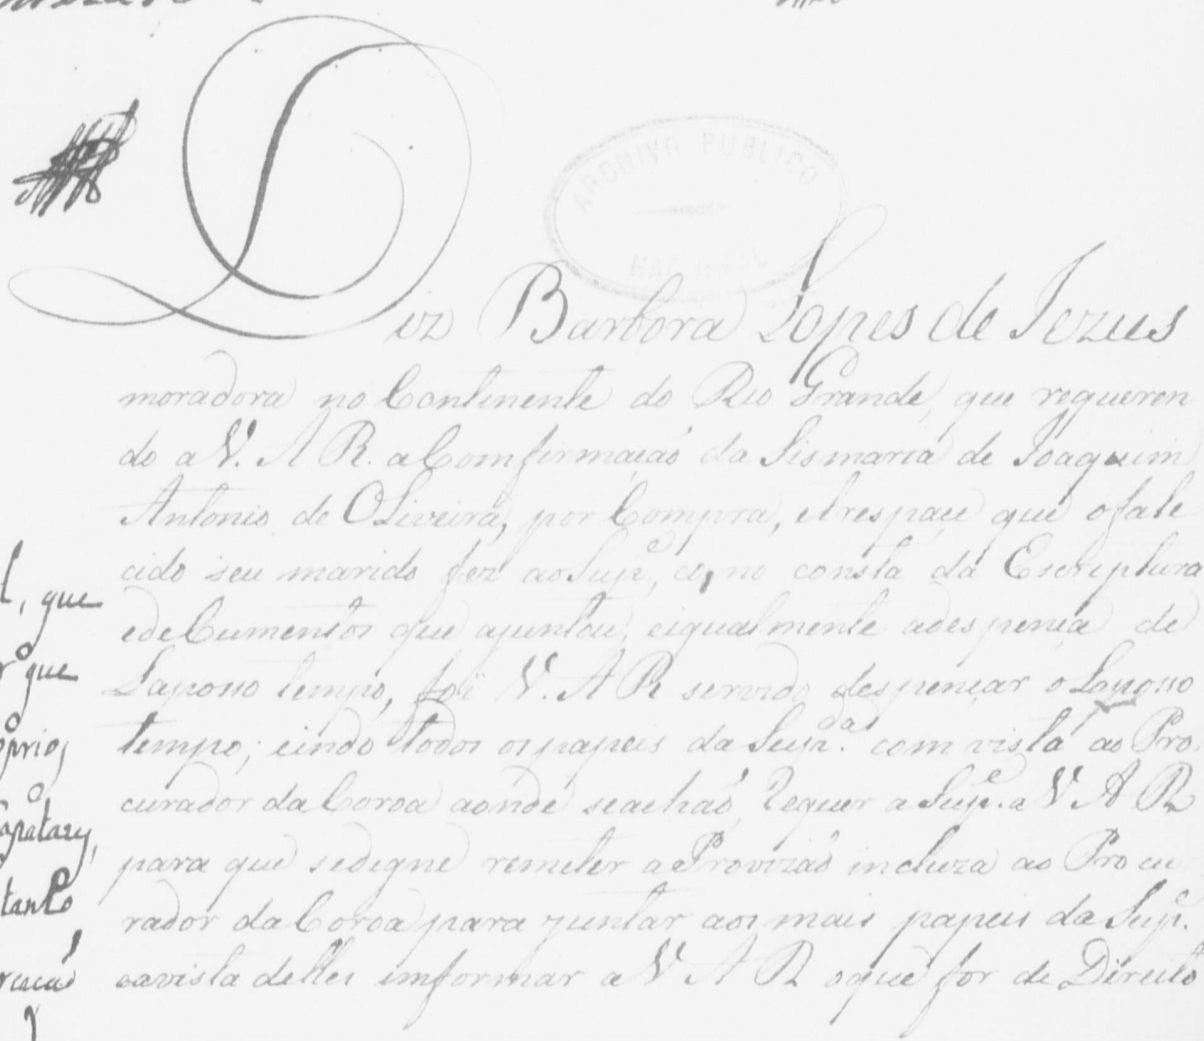 ARCHIVO PUBLICO
NACIONAL
Diz Barbora Lopes de Jezus
moradora no Continente do Rio Grande, que requeren
do a V. A R. a Comfirmaçaõ da Sismaria de Joaquim
Antonio de OLiveira, por Compra, e trespace que o fale
cido seu marido fez ao Supe, como consta da Escriptura
e de Cumentos que ajuntou, e igualmente a despença de
Laposso tempo, foi V. A R servido despençar o Laposso
tempo; e indo todos os papeis da Supda. com vista ao Pro
curador da Coroa aonde se achaõ, Requer a Supe. a V A R
para que se digne remeter a Provizaõ incluza ao Procu
rador da Coroa para juntar aos mais papeis da Supe.
e a vista delles imformar a V A R o que for de Direito
que
que
oprio
tanto